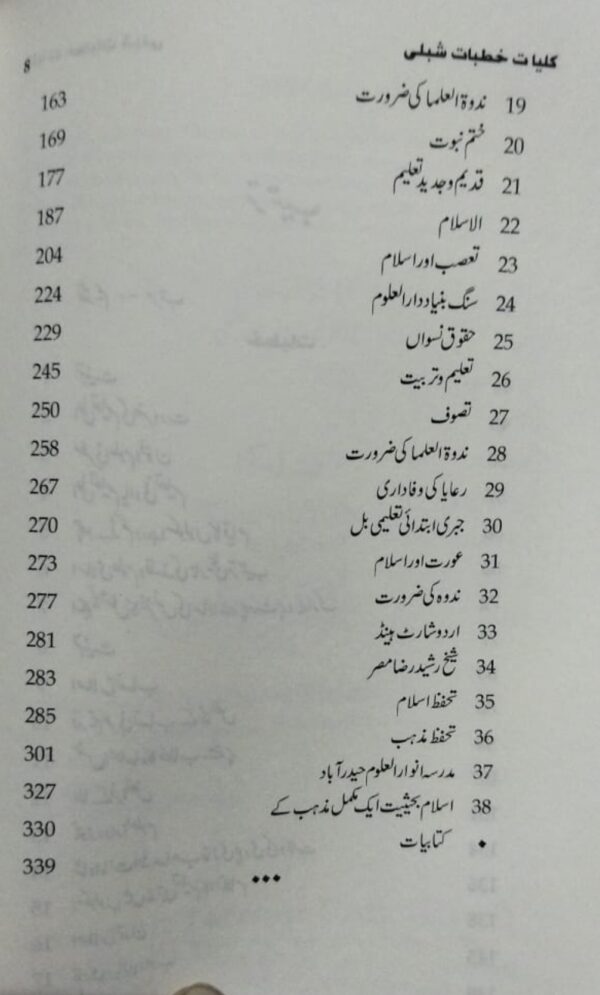 کلیات خطبات شبلی 8
19 ندوۃ العلما کی ضرورت 163
20 ختم نبوت 169
21 قدیم و جدید تعلیم 177
22 الاسلام 187
23 تعصب اور اسلام 204
24 سنگ بنیاد دارالعلوم 224
25 حقوق نسواں 229
26 تعلیم و تربیت 245
27 تصوف 250
28 ندوۃ العلما کی ضرورت 258
29 رعایا کی وفاداری 267
30 جبری ابتدائی تعلیمی بل 270
31 عورت اور اسلام 273
32 ندوہ کی ضرورت 277
33 اردو شارٹ ہینڈ 281
34 شیخ رشید رضا مصر 283
35 تحفظ اسلام 285
36 تحفظ مذہب 301
37 مدرسہ انوار العلوم حیدرآباد 327
38 اسلام بحیثیت ایک مکمل مذہب کے 330
• کتابیات 339
•••